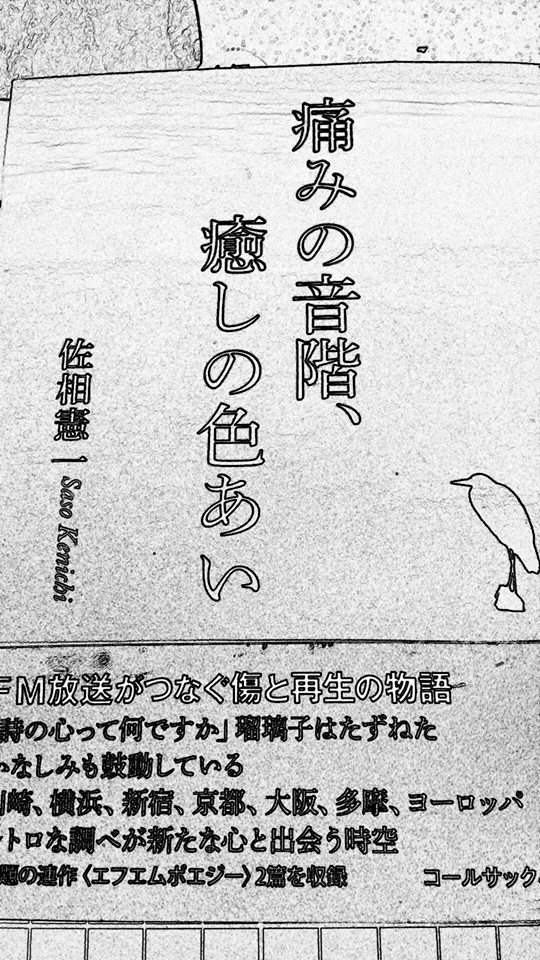 痛みの音階、
癒しの色あい
佐相憲一 Saso Kenichi
FM放送がつなぐ傷と再生の物語
詩の心って何ですか」瑠璃子はたずねた
かなしみも鼓動している
川崎、横浜、新宿、京都、大阪、多摩、ヨーロッパ
レトロな調べが新たな心と出会う時空
題の連作〈エフエムポエジー〉2篇を収録
コールサック